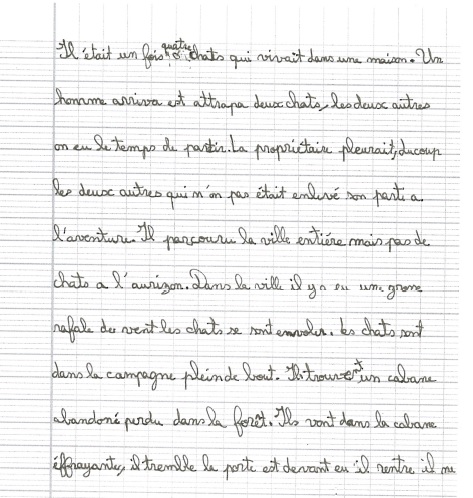 Il était un fois quatre chats qui vivait dans une maison. Un
homme arriva est attrapa deux chats, les deux autres
on eu le temps de partir. La propriétair pleurait, ducoup
les deux autres qui n'on pas était enlevé son parti a
l'aventure. Il parcouru la ville entiére mais pas de
chats a l'aurizon. Dans la ville il y a eu une grone
rafale de vent les chats se sont envoler. Les chats sont
dans la campagne plein de bout. Ils trouvent un cabane
abandoné perdu dans la forêt. Ils vont dans la cabane
éffrayante, il tremble la porte est devant eu il rentre il me